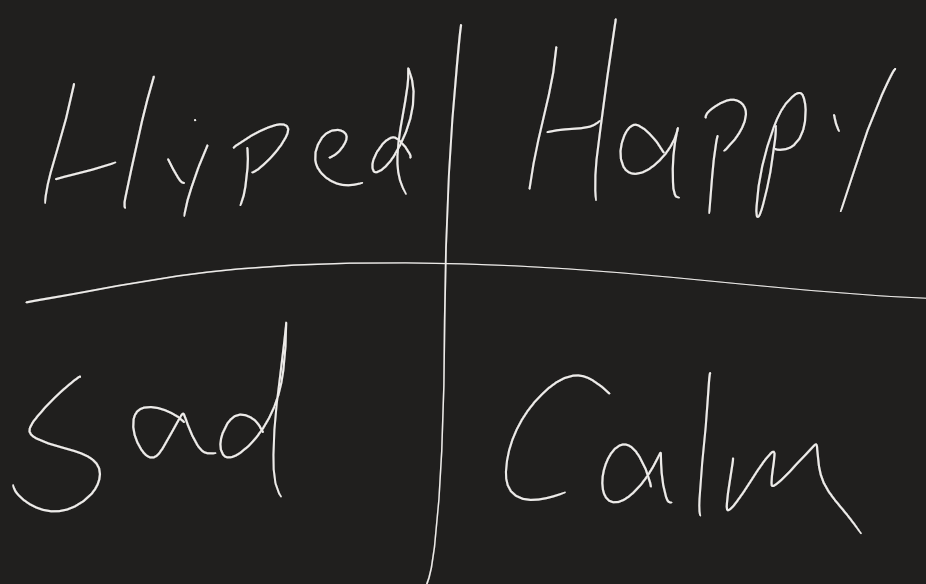 Hyped Happy
Sad Calm